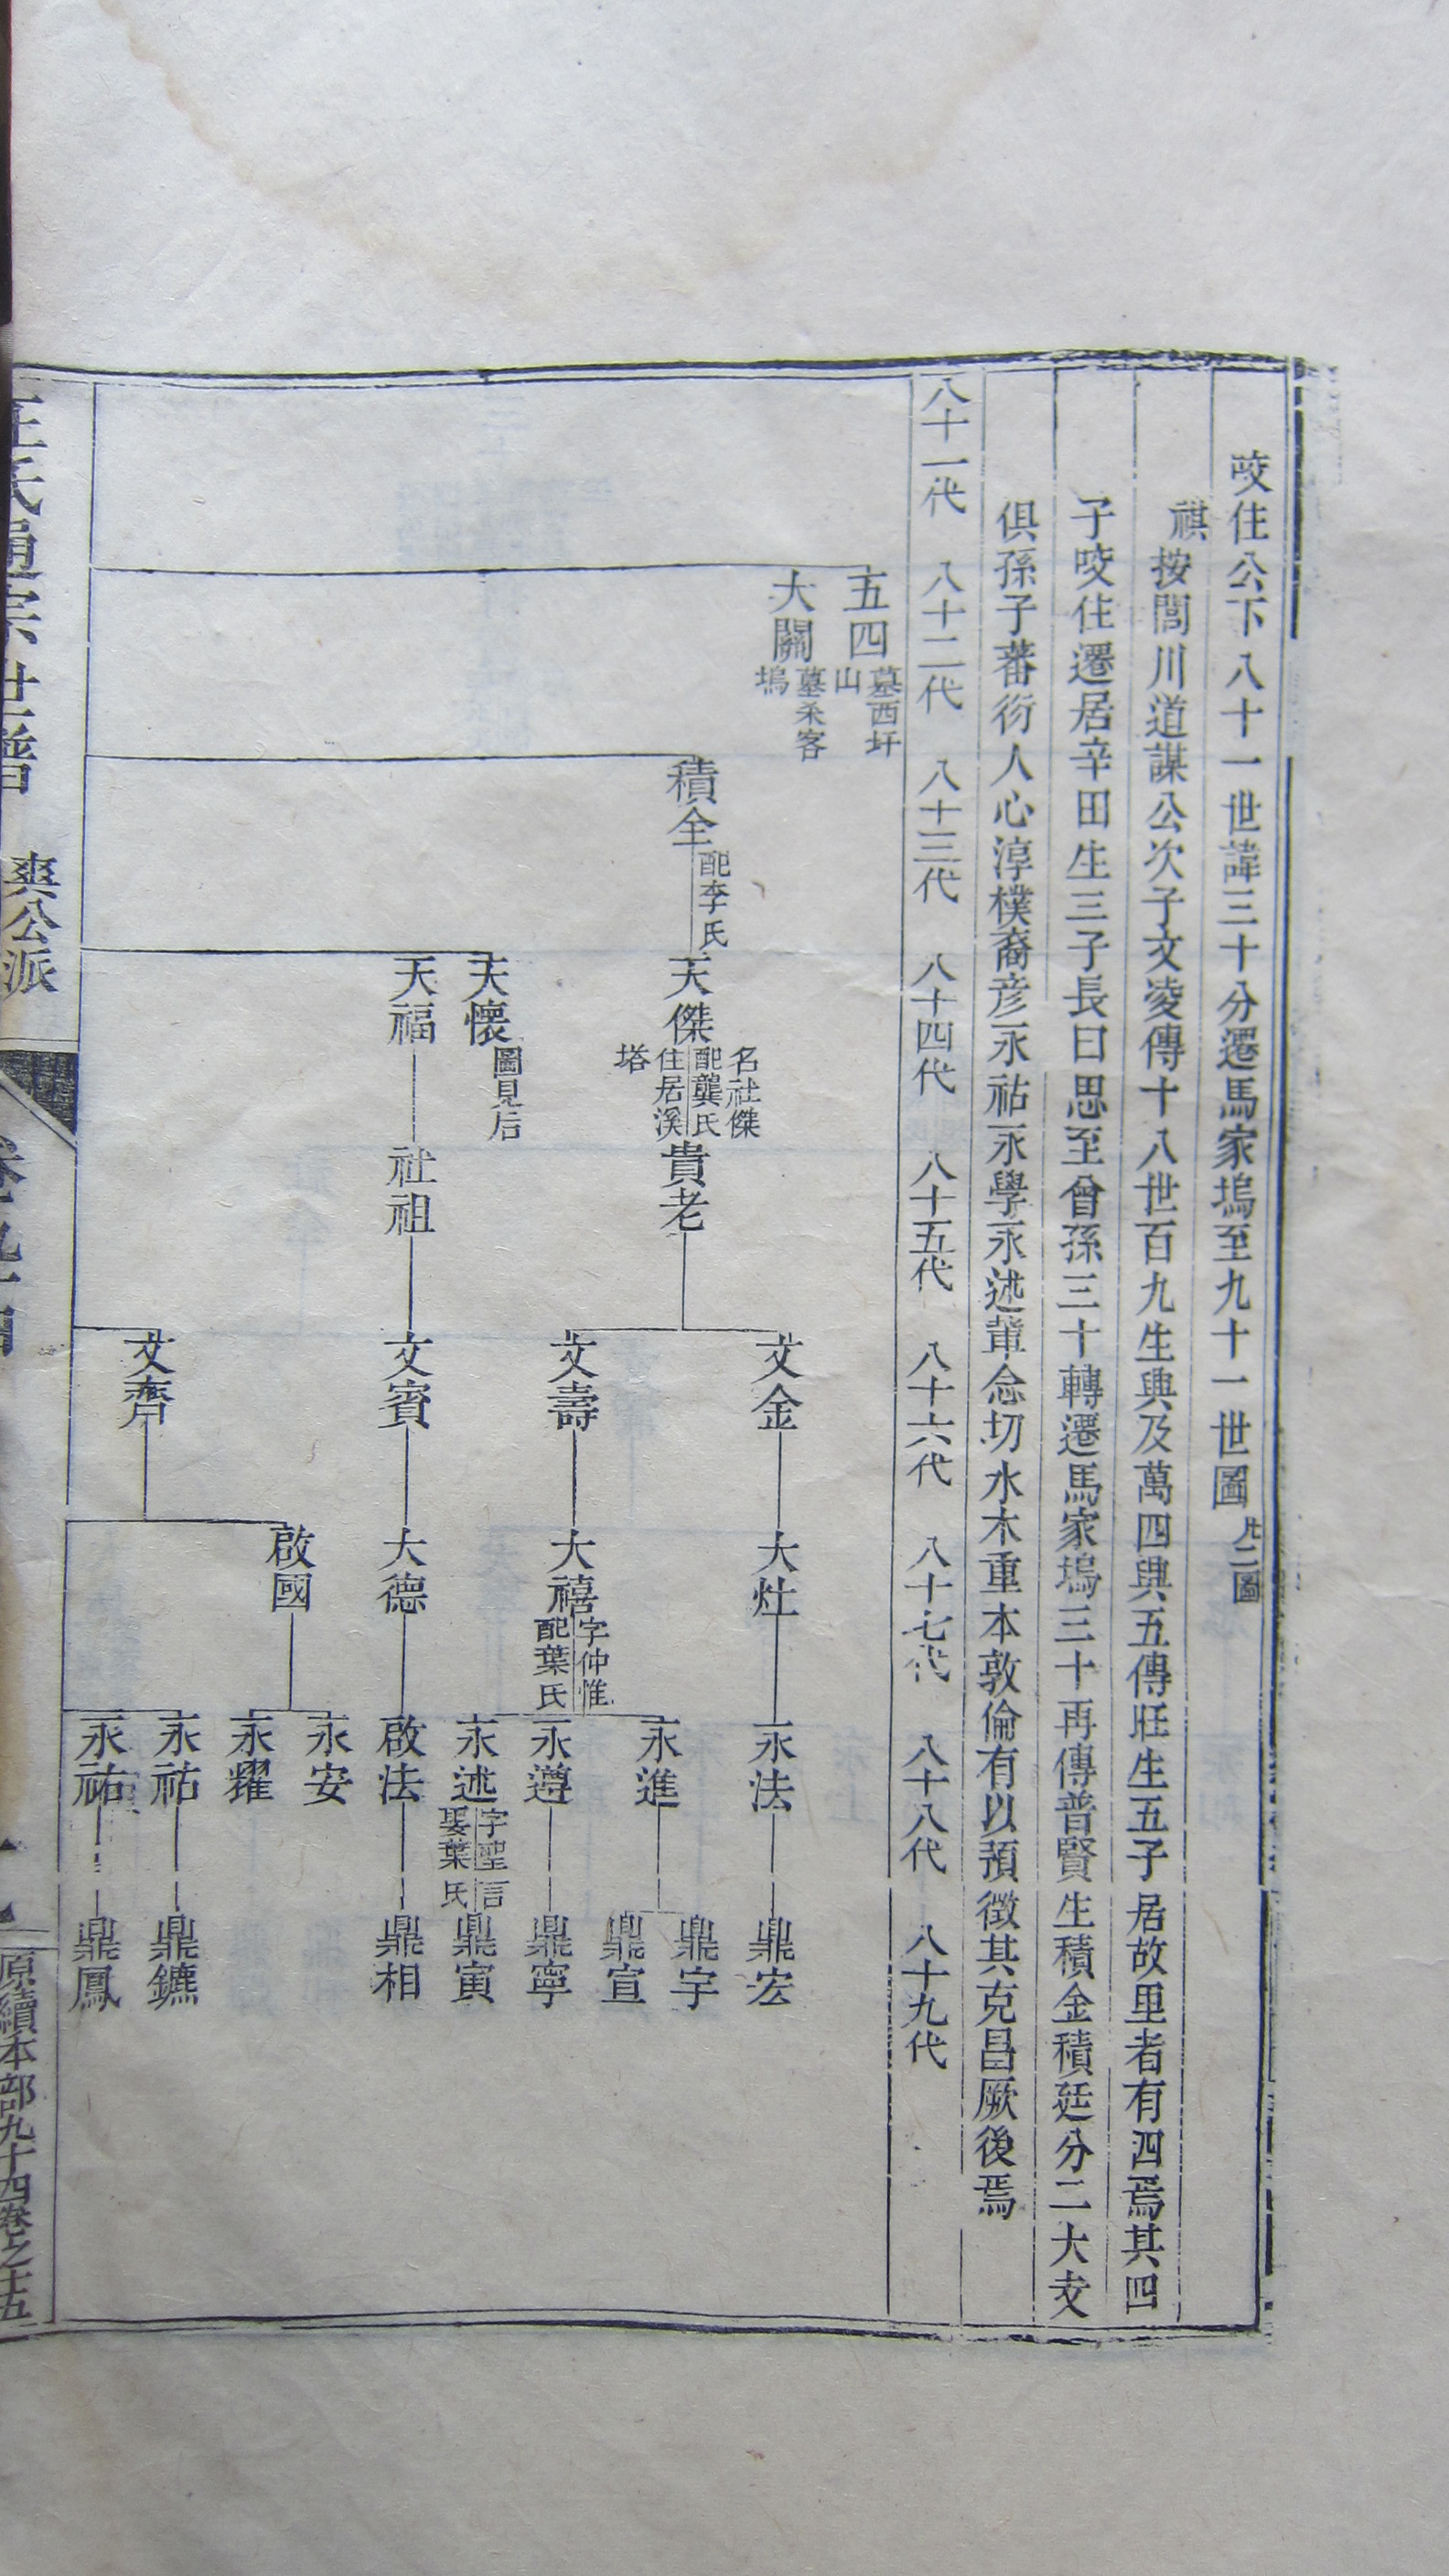 咬住公下八十一世諱三十分遷馬家塢至九十一世圖 共二圖
祺按閭川道謀公次子文凌傳十八世百九生興及萬四興五傳旺生五子居故里者有四焉其四
子咬住遷居辛田生三子長曰思至曾孫三十轉遷馬家塢三十再傳普賢生積金積廷分二大支
俱孫子蕃衍人心淳樸裔彦永祜永學永述輩念切水木重本敦倫有以預徵其克昌厥後焉
八十一代 八十二代 八十三代 八十四代 八十五代 八十六代 八十七代 八十八代 八十九代
五四 墓西圩山
大關 墓禾客塢
積全 配李氏
天傑 名社傑配龔氏住居溪塔
天懷 圖見后
天福
貴老
社祖
文金
文壽
文賓
文齊
大灶
大禧 字仲惟配葉氏
大德
啟國
永法
永進
永遵
永述 字聖言娶葉氏
啟法
永安
永耀
永祜
永祐
鼎宏
鼎宇
鼎宣
鼎寧
鼎寅
鼎相
鼎鑣
鼎鳳
汪氏通宗世譜 爽公派 卷九十四
原續本部九十四卷之十五